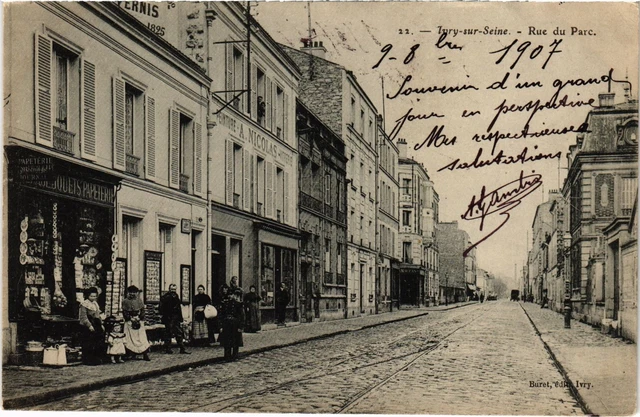 22. — Ivry-sur-Seine. - Rue du Parc.
9 - 8bre 1907
Souvenir d'un grand
jour en perspective
Mes respectueuses
salutations
VERNIS
1895
A. NICOLAS
PAPETERIE
JOUETS PAPETERIE
Buret, édit. Ivry.